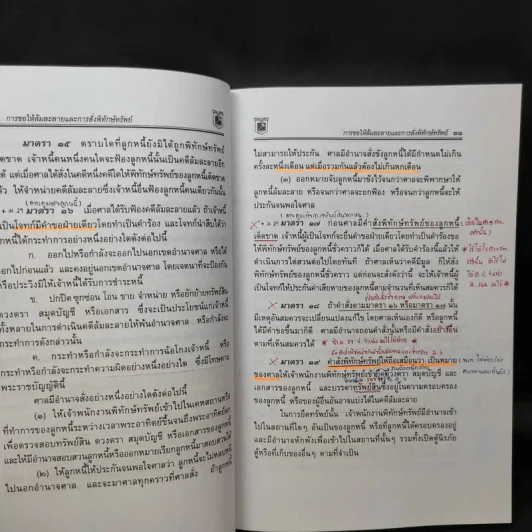 การขอให้ล้มละลายและการสั่งพิทักษ์ทรัพย์
มาตรา ๑๕ ตราบใดที่ลูกหนี้ยังมิได้ถูกพิทักษ์ทรัพย์
เด็ดขาด เจ้าหนี้คนหนึ่งคนใดจะฟ้องลูกหนี้นั้นเป็นคดีล้มละลายอีก
ก็ได้ แต่เมื่อศาลได้สั่งในคดีหนึ่งคดีใดให้พิทักษ์ทรัพย์ของลูกหนี้เด็ดขาด
แล้ว ให้จำหน่ายคดีล้มละลายซึ่งเจ้าหนี้อื่นฟ้องลูกหนี้คนเดียวกันนั้น
มาตรา ๑๖ เมื่อศาลได้รับฟ้องคดีล้มละลายแล้ว ถ้าเจ้าหนี้
เป็นโจทก์มีคำขอฝ่ายเดียวโดยทำเป็นคำร้อง และโจทก์นำสืบได้ว่า
ลูกหนี้ได้กระทำการอย่างหนึ่งอย่างใดดังต่อไปนี้
ก. ออกไปหรือกำลังจะออกไปนอกเขตอำนาจศาล หรือได้
ออกไปก่อนแล้ว และคงอยู่นอกเขตอำนาจศาล โดยเจตนาที่จะป้องกัน
หรือประวิงมิให้เจ้าหนี้ได้รับการชำระหนี้
ข. ปกปิด ซุกซ่อน โอน ขาย จำหน่าย หรือยักย้ายทรัพย์สิน
ดวงตรา สมุดบัญชี หรือเอกสาร ซึ่งจะเป็นประโยชน์แก่เจ้าหนี้
ทั้งหลายในการดำเนินคดีล้มละลายให้พ้นอำนาจศาล หรือกำลังจะ
กระทำการดังกล่าวนั้น
ค. กระทำหรือกำลังจะกระทำการฉ้อโกงเจ้าหนี้ หรือ
พระราชบัญญัตินี้
ศาลมีอำนาจสั่งอย่างหนึ่งอย่างใดดังต่อไปนี้
(๑) ให้เจ้าพนักงานพิทักษ์ทรัพย์เข้าไปในเคหสถานหรือ
ที่ทำการของลูกหนี้ระหว่างเวลาพระอาทิตย์ขึ้นจนถึงพระอาทิตย์ตก
เพื่อตรวจสอบทรัพย์สิน ดวงตรา สมุดบัญชี หรือเอกสารของลูกหนี้
และให้มีอำนาจสอบสวนลูกหนี้หรือออกหมายเรียกลูกหนี้มาสอบสวนได้
(๒) ให้ลูกหนี้ให้ประกันจนพอใจศาลว่า ลูกหนี้จะไม่หลบหนี
ไปนอกอำนาจศาล และจะมาศาลทุกคราวที่ศาลสั่ง ถ้าลูกหนี้
การขอให้ล้มละลายและการสั่งพิทักษ์ทรัพย์ ๑๑
ไม่สามารถให้ประกัน ศาลมีอำนาจสั่งขังลูกหนี้ได้มีกำหนดไม่เกิน
ครั้งละหนึ่งเดือน แต่เมื่อรวมกันแล้วต้องไม่เกินหกเดือน
(๓) ออกหมายจับลูกหนี้มาขังไว้จนกว่าศาลจะพิพากษาให้
ลูกหนี้ล้มละลาย หรือจนกว่าศาลจะยกฟ้อง หรือจนกว่าลูกหนี้จะให้
ประกันจนพอใจศาล
มาตรา ๑๗ ก่อนศาลมีคำสั่งพิทักษ์ทรัพย์ของลูกหนี้
เด็ดขาด เจ้าหนี้ผู้เป็นโจทก์จะยื่นคำขอฝ่ายเดียวโดยทำเป็นคำร้องขอ
ให้พิทักษ์ทรัพย์ของลูกหนี้ชั่วคราวก็ได้ เมื่อศาลได้รับคำร้องนี้แล้วให้
ดำเนินการไต่สวนต่อไปโดยทันที ถ้าศาลเห็นว่าคดีมีมูล ก็ให้สั่ง
พิทักษ์ทรัพย์ของลูกหนี้ชั่วคราว แต่ก่อนจะสั่งดังว่านี้ จะให้เจ้าหนี้ผู้
เป็นโจทก์ให้ประกันค่าเสียหายของลูกหนี้ตามจำนวนที่เห็นสมควรก็ได้
มาตรา ๑๘ ถ้าคำสั่งตามมาตรา ๑๖ หรือมาตรา ๑๗ นั้น
มีเหตุอันสมควรจะเปลี่ยนแปลงแก้ไข โดยศาลเห็นเองก็ดี หรือลูกหนี้
ได้มีคำขอขึ้นมาก็ดี ศาลมีอำนาจถอนคำสั่งนั้นหรือมีคำสั่งอย่างอื่น
ตามที่เห็นสมควรได้
มาตรา ๑๙ คำสั่งพิทักษ์ทรัพย์ให้ถือเสมือนว่า เป็นหมาย
ของศาลให้เจ้าพนักงานพิทักษ์ทรัพย์เข้ายึดดวงตรา สมุดบัญชี และ
เอกสารของลูกหนี้ และบรรดาทรัพย์สินซึ่งอยู่ในความครอบครอง
ของลูกหนี้ หรือของผู้อื่นอันอาจแบ่งได้ในคดีล้มละลาย
ในการยึดทรัพย์นั้น เจ้าพนักงานพิทักษ์ทรัพย์มีอำนาจเข้า
ไปในสถานที่ใดๆ อันเป็นของลูกหนี้ หรือที่ลูกหนี้ได้ครอบครองอยู่
และมีอำนาจหักพังเพื่อเข้าไปในสถานที่นั้นๆ รวมทั้งเปิดตู้นิรภัย
ตู้หรือที่เก็บของอื่นๆ ตามที่จำเป็น